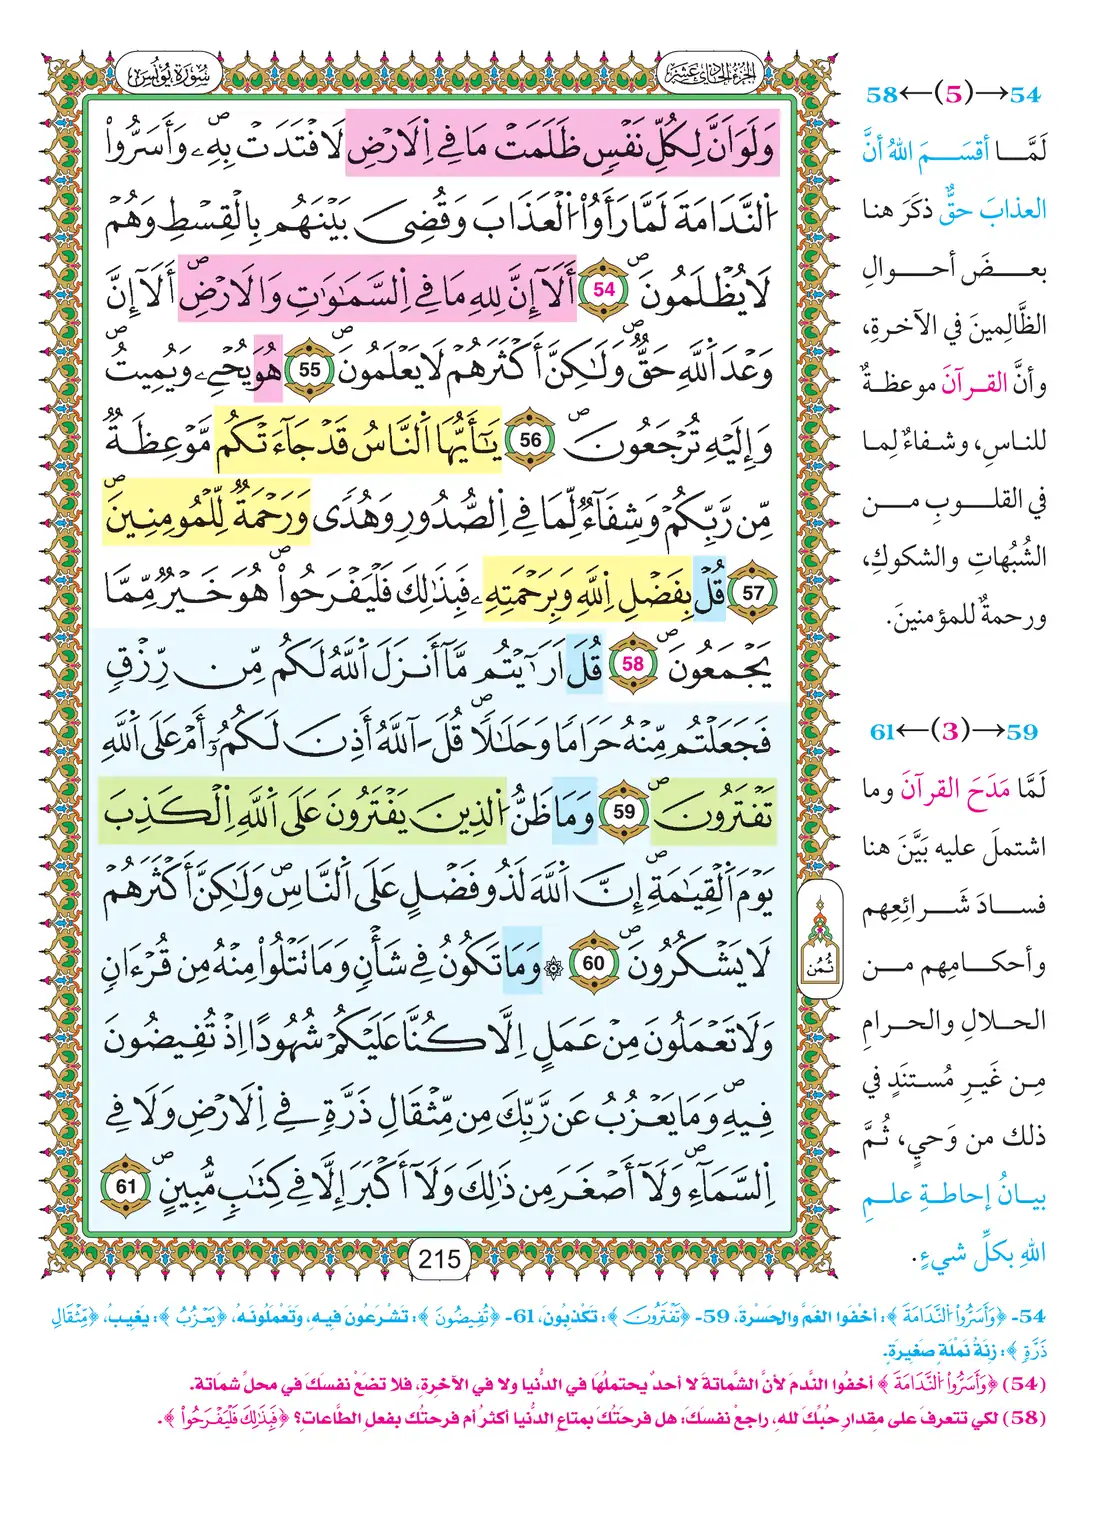 سُورَةُ يُونُسَ
الجزء الحادي عشر
وَلَوَ اَنَّ لِكُلِّ نَفْسٖ ظَلَمَتْ مَا فِے اِ۬لَارْضِ لَافْتَدَتْ بِهِۦۖ وَأَسَرُّواْ
اُ۬لنَّدَامَةَ لَمَّا رَأَوُاْ اُ۬لْعَذَابَ وَقُضِيَ بَيْنَهُم بِالْقِسْطِ وَهُمْ
لَا يُظْلَمُونَۖ 54 أَلَآ إِنَّ لِلهِ مَا فِے اِ۬لسَّمَٰوَٰتِ وَالَارْضِۖ أَلَآ إِنَّ
وَعْدَ اَ۬للَّهِ حَقّٞۖ وَلَٰكِنَّ أَكْثَرَهُمْ لَا يَعْلَمُونَۖ 55 هُوَ يُحْيِۦ وَيُمِيتُۖ
وَإِلَيْهِ تُرْجَعُونَۖ 56 يَٰٓأَيُّهَا اَ۬لنَّاسُ قَدْ جَآءَتْكُم مَّوْعِظَةٞ
مِّن رَّبِّكُمْ وَشِفَآءٞ لِّمَا فِے اِ۬لصُّدُورِ وَهُدىٗ وَرَحْمَةٞ لِّلْمُومِنِينَۖ
57 قُلْ بِفَضْلِ اِ۬للَّهِ وَبِرَحْمَتِهِۦ فَبِذَٰلِكَ فَلْيَفْرَحُواْۖ هُوَ خَيْرٞ مِّمَّا
يَجْمَعُونَۖ 58 قُلَ اَرَٰٓيْتُم مَّآ أَنزَلَ اَ۬للَّهُ لَكُم مِّن رِّزْقٖ
فَجَعَلْتُم مِّنْهُ حَرَاماٗ وَحَلَٰلاٗۖ قُلَ ـ آللَّهُ أَذِنَ لَكُمُۥٓ أَمْ عَلَى اَ۬للَّهِ
تَفْتَرُونَۖ 59 وَمَا ظَنُّ اُ۬لذِينَ يَفْتَرُونَ عَلَى اَ۬للَّهِ اِ۬لْكَذِبَ
يَوْمَ اَ۬لْقِيَٰمَةِۖ إِنَّ اَ۬للَّهَ لَذُو فَضْلٍ عَلَى اَ۬لنَّاسِۖ وَلَٰكِنَّ أَكْثَرَهُمْ
لَا يَشْكُرُونَۖ 60 ۞ وَمَا تَكُونُ فِے شَأْنٖ وَمَا تَتْلُواْ مِنْهُ مِن قُرْءَانٖ
وَلَا تَعْمَلُونَ مِنْ عَمَلٍ اِلَّا كُنَّا عَلَيْكُمْ شُهُوداً اِذْ تُفِيضُونَ
فِيهِۖ وَمَا يَعْزُبُ عَن رَّبِّكَ مِن مِّثْقَالِ ذَرَّةٖ فِے اِ۬لَارْضِ وَلَا فِے
اِ۬لسَّمَآءِۖ وَلَآ أَصْغَرَ مِن ذَٰلِكَ وَلَآ أَكْبَرَ إِلَّا فِے كِتَٰبٖ مُّبِينٍۖ 61
ثُمُن
215
58←(5)→54
لَمَّا أقسَمَ اللهُ أنَّ
العذابَ حقٌّ ذكَرَ هنا
بعضَ أحوالِ
الظَّالِمينَ في الآخرةِ،
وأنَّ القرآنَ موعظةٌ
للناسِ، وشفاءٌ لِما
في القلوبِ من
الشُبُهاتِ والشكوكِ،
ورحمةٌ للمؤمنينَ.
61←(3)→59
لَمَّا مَدَحَ القرآنَ وما
اشتملَ عليه بَيَّنَ هنا
فسادَ شَرائِعِهم
وأحكامِهم من
الحلالِ والحرامِ
مِن غَيرِ مُستنَدٍ في
ذلك من وَحيٍ، ثُمَّ
بيانُ إحاطةِ علمِ
اللهِ بكلِّ شيءٍ.
54- ﴿وَأَسَرُّواْ اُ۬لنَّدَامَةَ﴾: أخْفَوا الغَمَّ والحَسْرةَ، 59- ﴿تَفْتَرُونَ﴾: تَكْذِبُونَ، 61- ﴿تُفِيضُونَ﴾: تَشْرَعُونَ فيهِ، وتَعْمَلُونَهُ، ﴿يَعْزُبُ﴾: يَغيبُ، ﴿مِّثْقَالِ
ذَرَّةٖ﴾: زِنَةُ نَمْلَةٍ صَغِيرَةٍ.
(54) ﴿وَأَسَرُّواْ اُ۬لنَّدَامَةَ﴾ أخفُوا النَّدمَ لأنَّ الشَّماتةَ لا أحدٌ يحتملُها في الدُّنيا ولا في الآخرةِ، فلا تضَعْ نفسَكَ في محلِّ شماتة.
(58) لكي تتعرفَ على مِقدارِ حُبِّكَ لله، راجعْ نفسَكَ: هل فرحَتُكَ بمتاعِ الدُّنيا أكثرُ أم فرحتُك بفعلِ الطَّاعات؟ ﴿فَبِذَٰلِكَ فَلْيَفْرَحُواْ﴾.